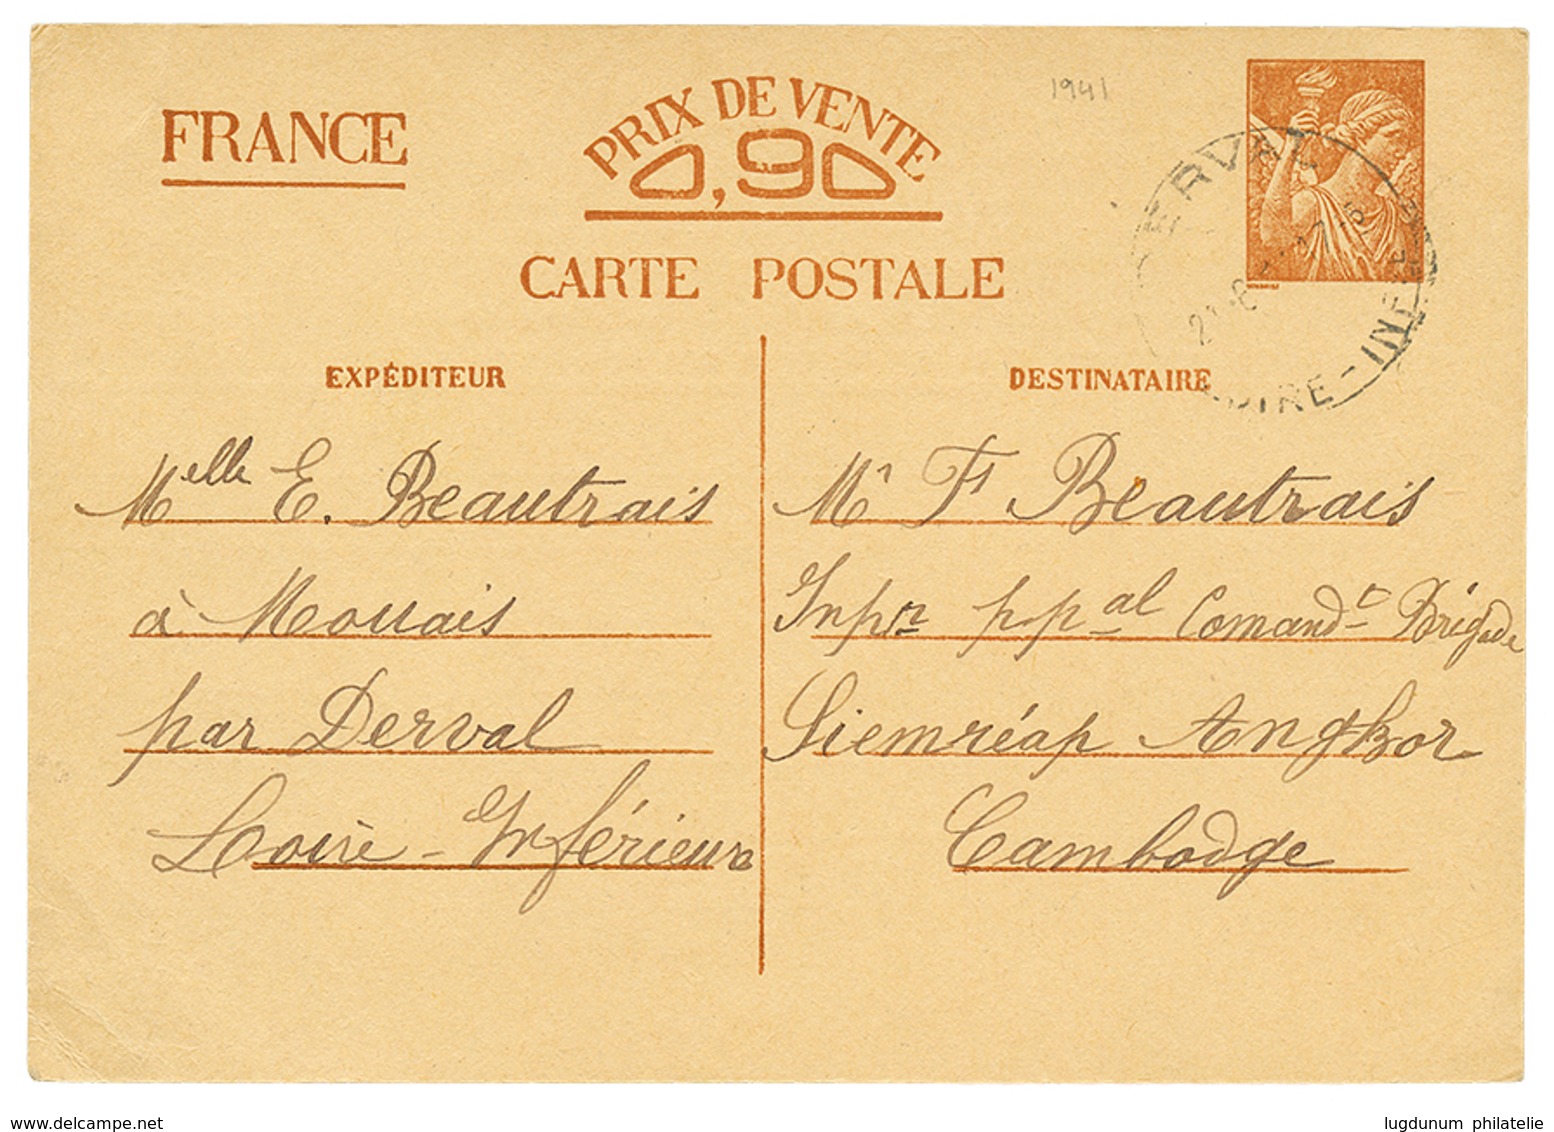 FRANCE
PRIX DE VENTE
0,90
CARTE POSTALE
1941
ERVAL
LOIRE-INFRE
EXPÉDITEUR
Melle E. Beautrais
à Mouais
par Derval
Loire-Inférieure
DESTINATAIRE
Mr Fs Beautrais
Inpr ppal Comandt Brigade
Siemréap Angkor
Cambodge
www.delcampe.net
lugdunum philatelie